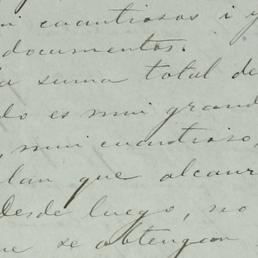 mi cuantiosos i y
documentos.
a suma total de
do es mui grand
, mui cuantioso,
lan que alcanz
Desde luego, no
ue se obtengan